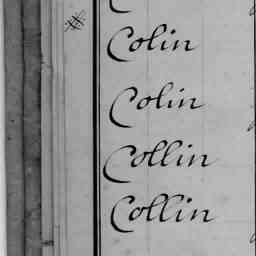 Colin
Colin
Collin
Collin